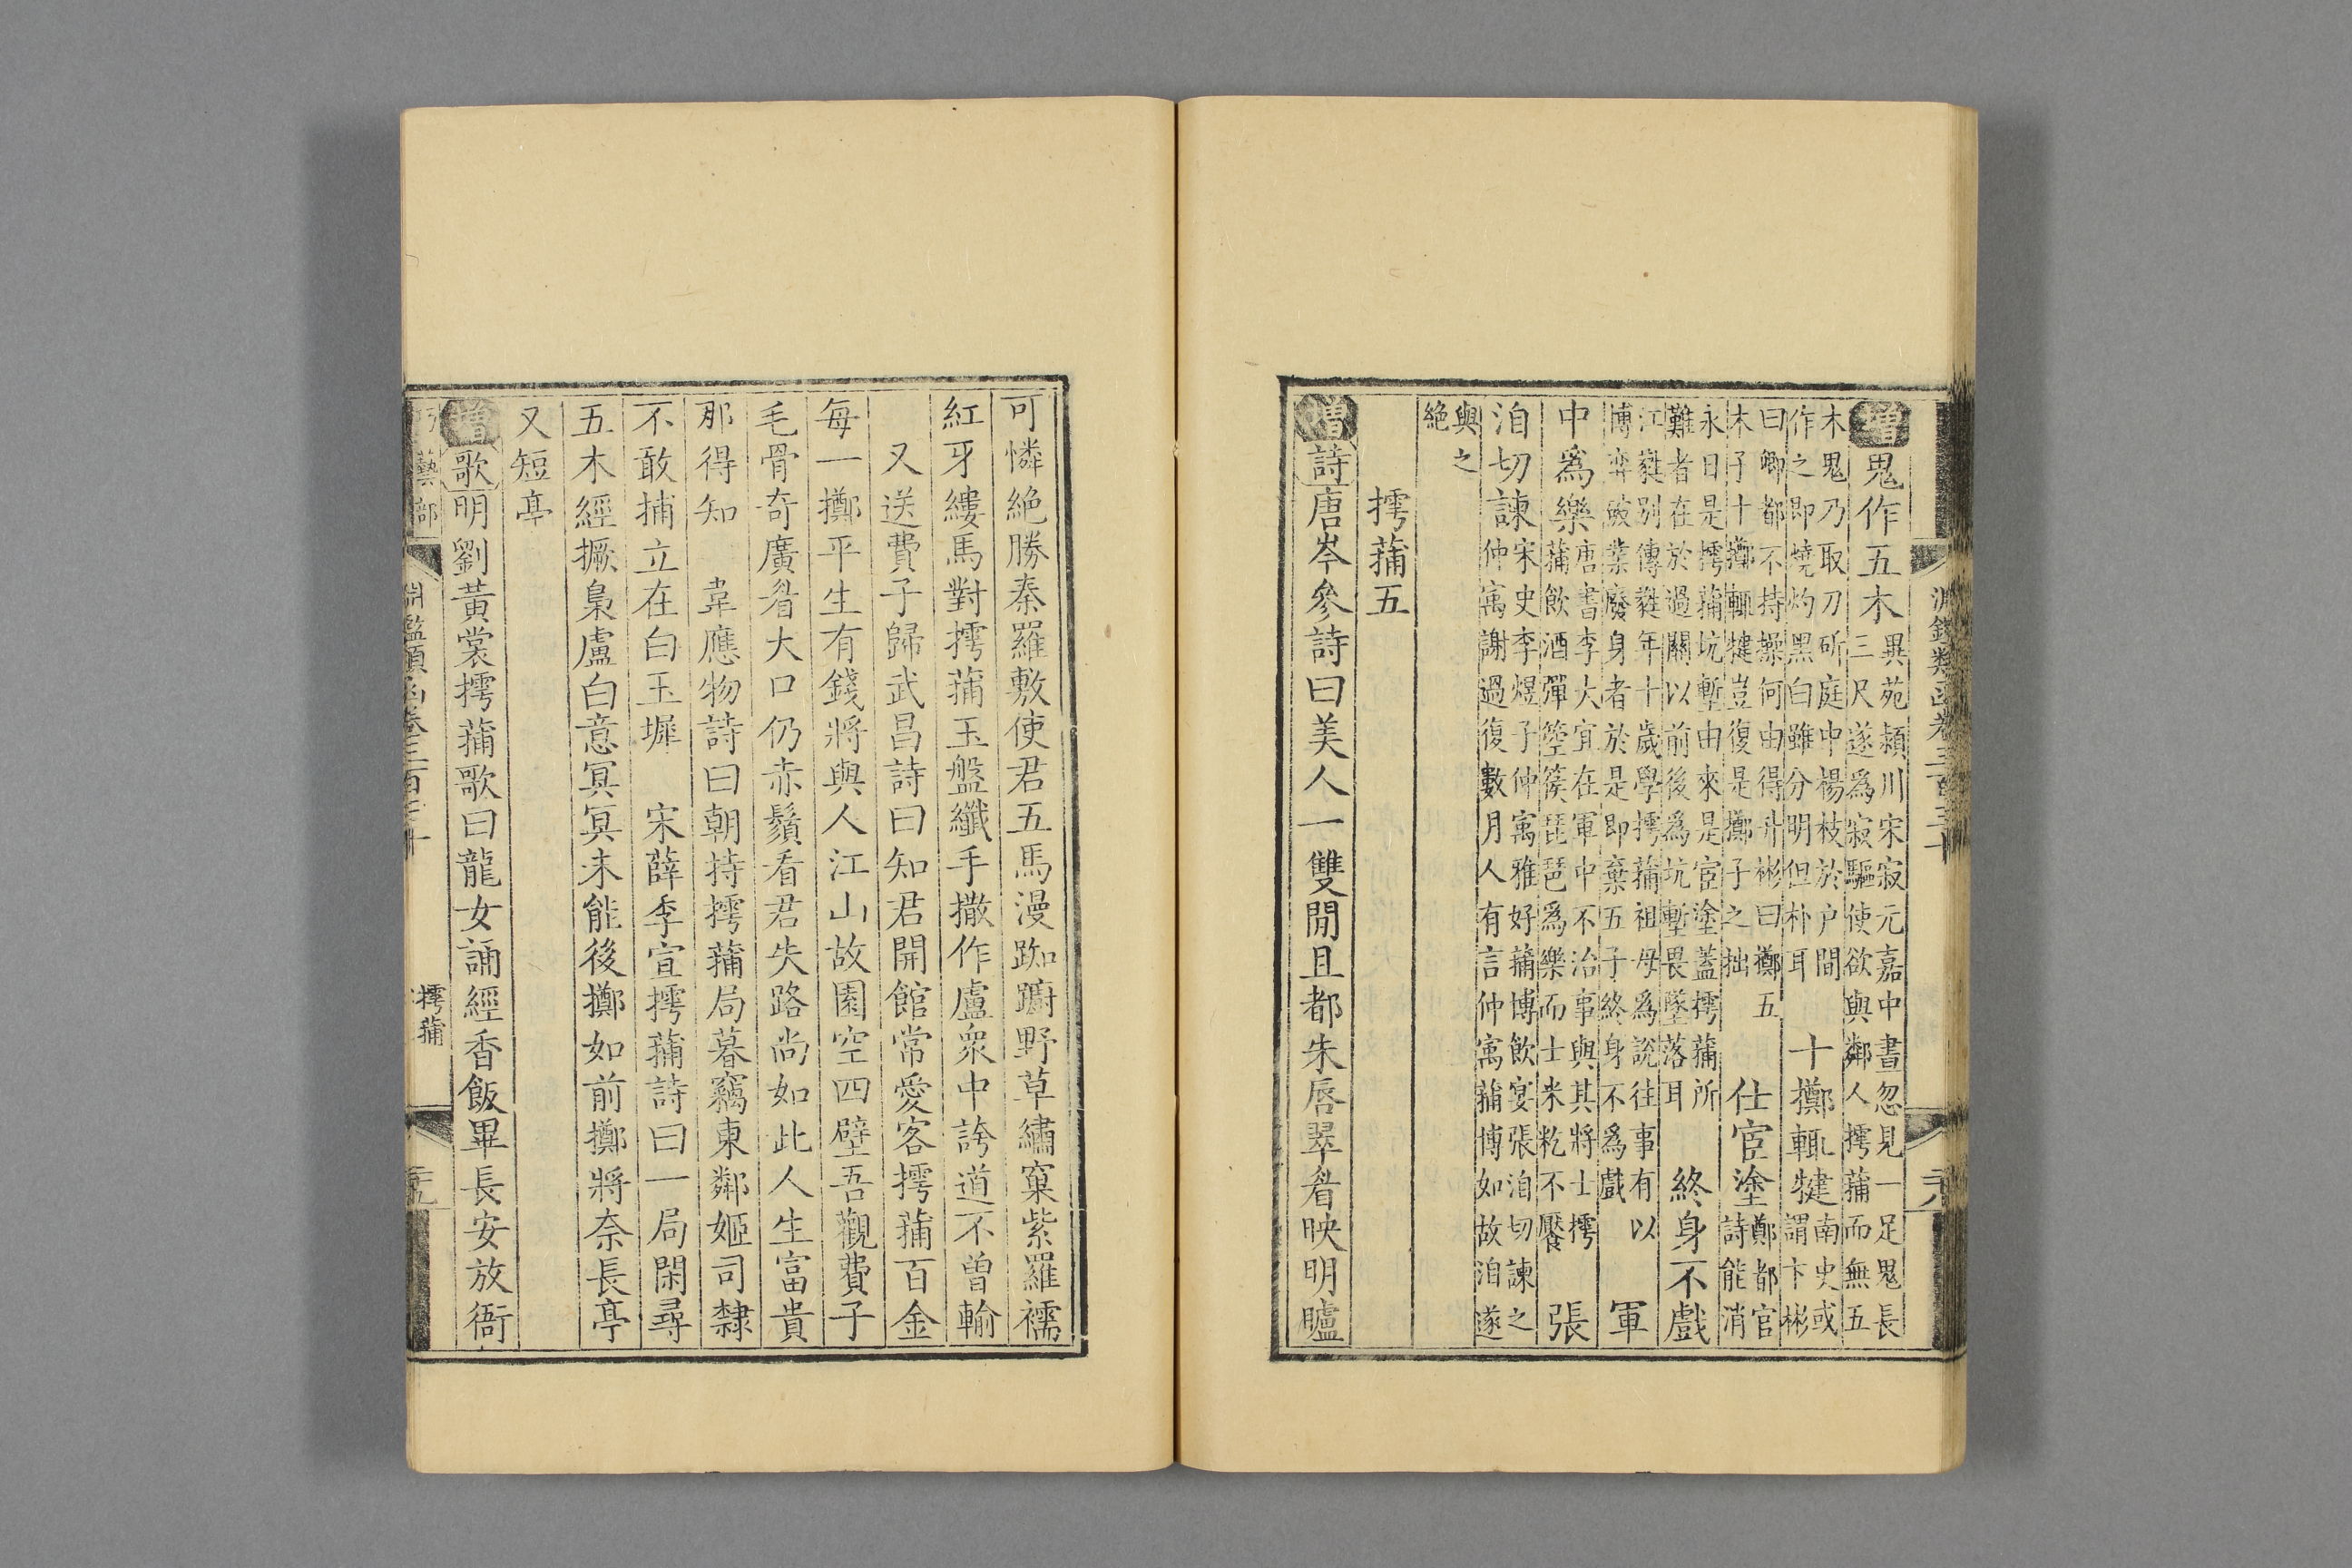 淵鑑類函卷三百三十
增鬼作五木異苑潁川宋寂元嘉中晝忽見一足鬼長三尺遂為寂驅使欲與鄰人摴蒱而無五
木鬼乃取刀斫庭中楊枝於户間作之即燒灼黑白雖分明但朴耳　十擲輒犍南史或謂卞彬
曰卿都不持操何由得升彬曰擲五木子十擲輒犍豈復是擲子之拙　仕宦塗鄭都官詩能消
永日是摴蒱坑塹由來是宦塗蓋摴蒱所難者在於過關以前後為坑塹畏墜落耳　終身不戲
江蕤別傳蕤年十歲學摴蒱祖母為說往事有以博弈破業廢身者於是即棄五子終身不為戲　軍
中為樂唐書李大宜在軍中不治事與其將士摴蒱飲酒彈箜篌琵琶為樂而士米籺不饜　張
洎切諫宋史李煜子仲寓雅好蒱博飲宴張洎切諫之仲寓謝過復數月人有言仲寓蒱博如故洎遂
與之絕
摴蒱五
增詩唐岑參詩曰美人一雙閒且都朱唇翠眉映明矑
可憐絕勝秦羅敷使君五馬漫踟躕野草繡窠紫羅襦
紅牙縷馬對摴蒱玉盤纖手撒作盧衆中誇道不曾輸
又送費子歸武昌詩曰知君開館常愛客摴蒱百金
每一擲平生有錢將與人江山故園空四壁吾觀費子
毛骨奇廣眉大口仍赤鬚看君失路尚如此人生富貴
那得知　韋應物詩曰朝持摴蒱局暮竊東鄰姬司隸
不敢捕立在白玉墀　宋薛季宣摴蒱詩曰一局閑尋
五木經撅梟盧白意冥冥未能後擲如前擲將奈長亭
又短亭
增歌明劉黃裳摴蒱歌曰龍女誦經香飯畢長安放衙
藝部
淵鑑類函卷三百三十
摴蒱